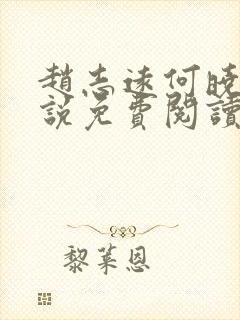 趙志遠何曉
說免費閱讀
黎萊恩